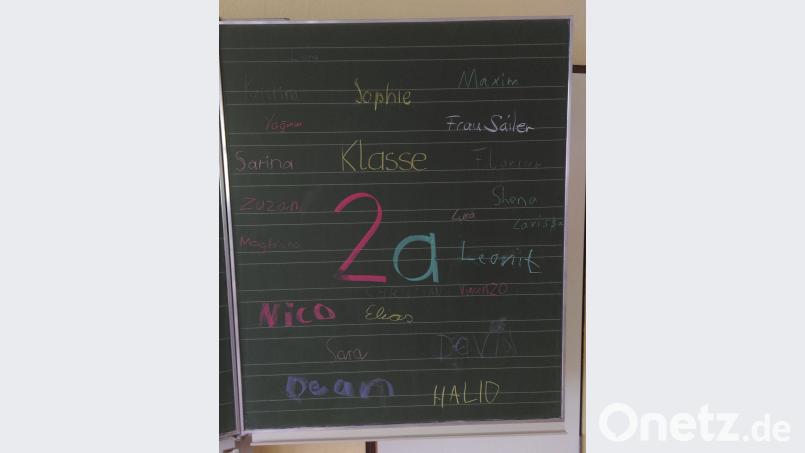 Lara
Kristina
Sophie
Maxim
Yağmur
Frau Sailer
Sarina
Klasse
Florian
Zuzan
Shena
Luca
Larissa
2a
Leonit
Vincenzo
Nico
Elias
Sara
DEVIX
Dean
HALID
Onetz.de